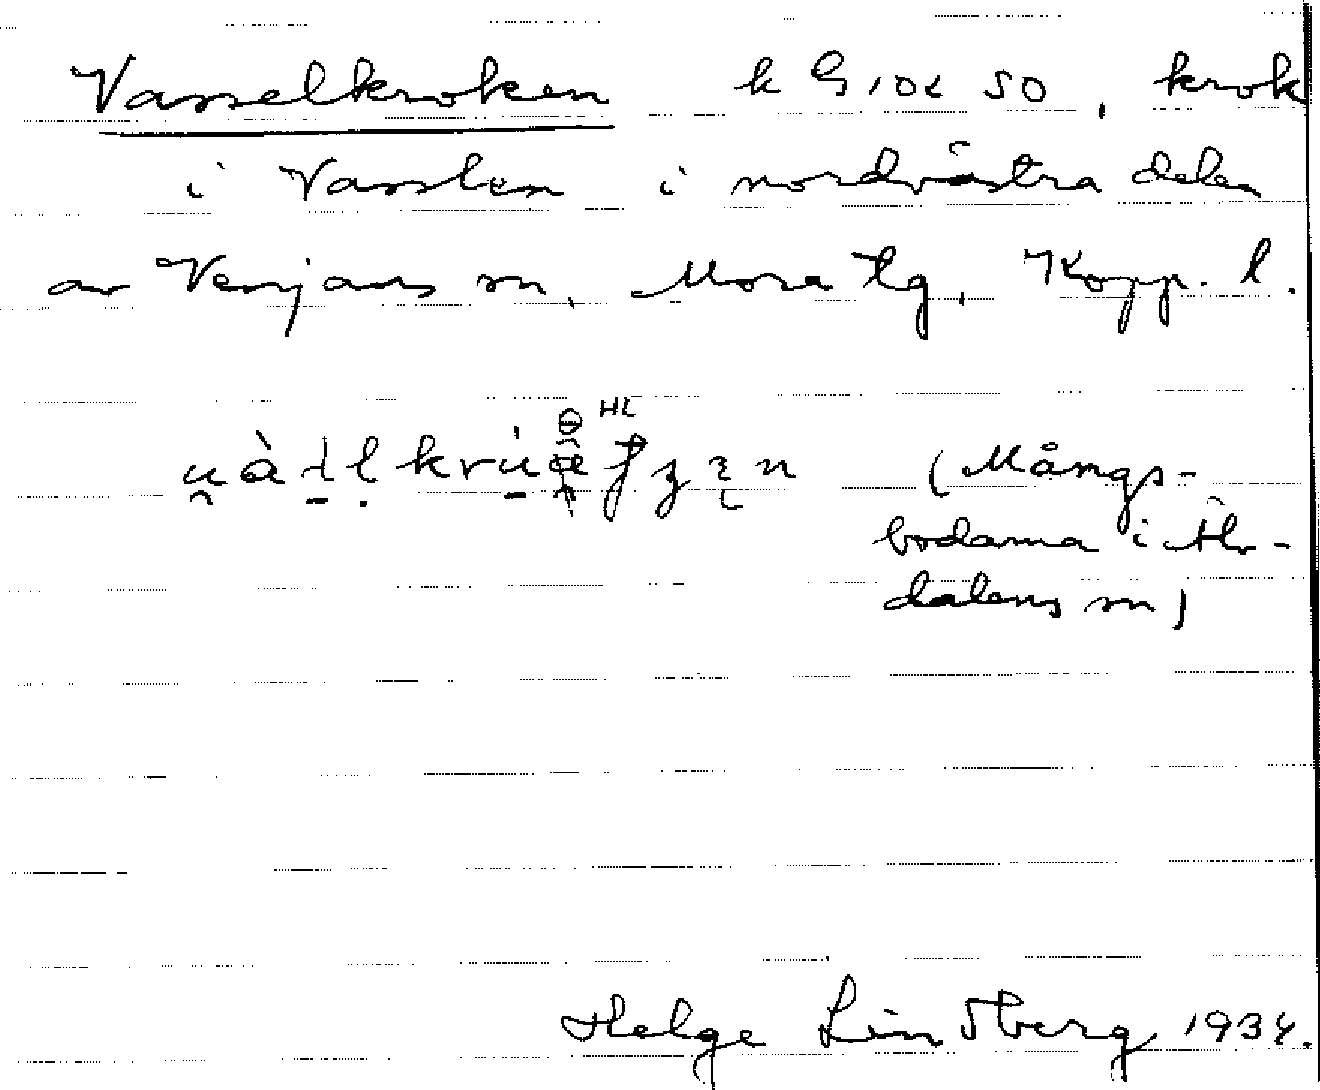 Vasselkroken k G 10e SO, krok
i Vasslen i nordvästra delen
av Venjans sn, Mora tg, Kopp. l.
HL
(Mångs-
bodarna i Älv-
dalens sn)
Helge Lindberg 1934.